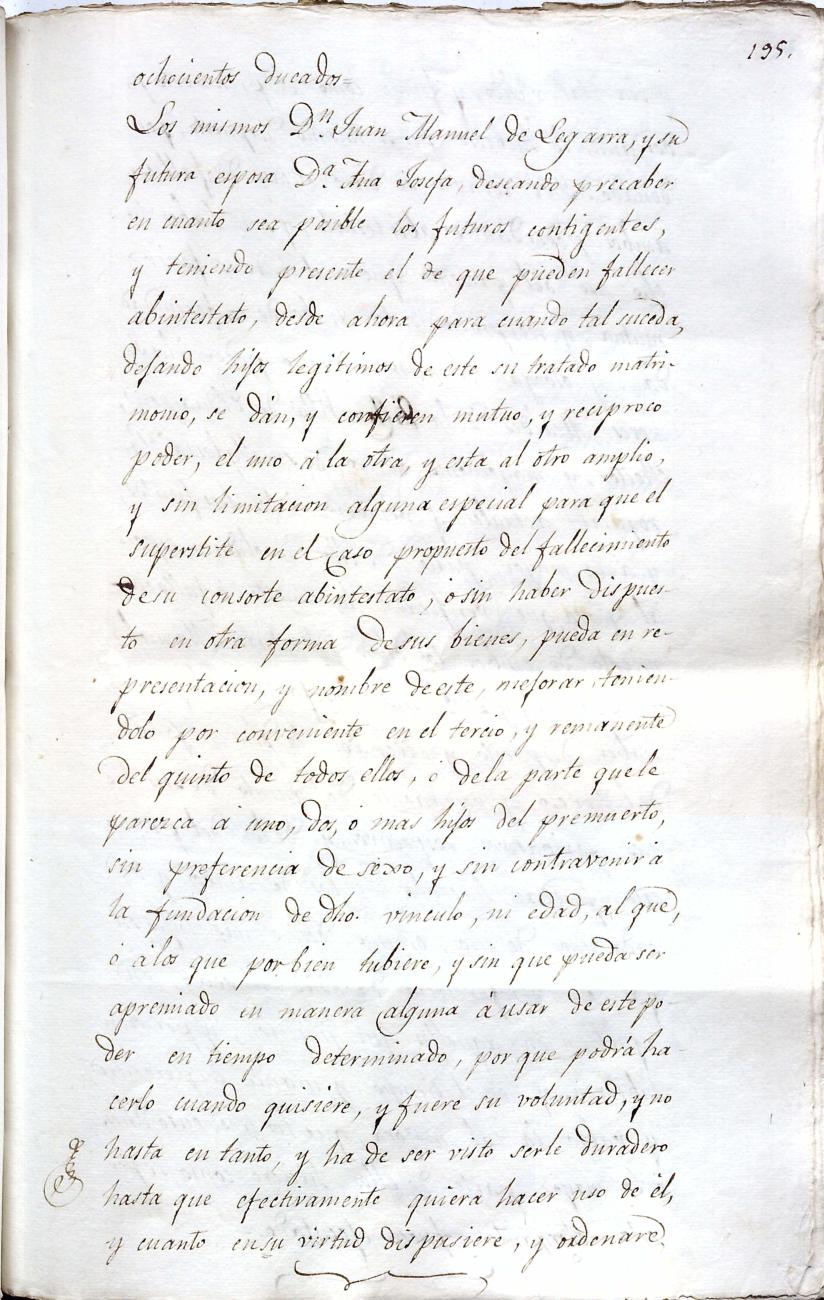 195.
ochocientos ducados=
Los mismos Dn. Juan Manuel de Legarra, y su
futura esposa Da. Ana Josefa, deseando precaber
en cuanto sea posible los futuros contigentes,
y teniendo presente el de que pueden fallecer
abintestato, desde ahora para cuando tal suceda,
dejando hijos legitimos de este su tratado matri-
monio, se dán, y confieren mutuo, y reciproco
poder, el uno á la otra, y esta al otro amplio,
y sin limitacion alguna especial para que el
superstite en el caso propuesto del fallecimiento
de su consorte abintestato, ó sin haber dispues-
to en otra forma de sus bienes, pueda en re-
presentacion, y nombre de este, mejorar tenien-
dolo por conveniente en el tercio, y remanente
del quinto de todos ellos, ó dela parte que le
parezca á uno, dos, ó mas hijos del premuerto,
sin preferencia de sexo, y sin contravenir á
la fundacion de dho. vinculo, ni edad, al que,
ó á los que por bien tubiere, y sin que pueda ser
apremiado en manera alguna á usar de este po-
der en tiempo determinado, por que podrá ha-
cerlo cuando quisiere, y fuere su voluntad, y no
hasta en tanto, y ha de ser visto serle duradero
hasta que efectivamente quiera hacer uso de él,
y cuanto en su virtud dispusiere, y ordenare